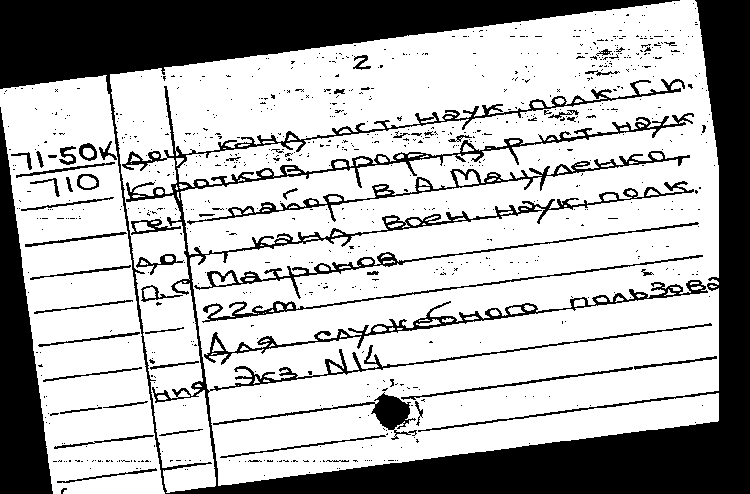 2.
71-50К
710
доц., канд. ист. наук, полк Г.П.
Коротков, проф., д-р ист. наук,
ген.-майор В.А. Мацуленко,
доц., канд. воен. наук, полк.
П.С. Матронов.
22 cm.
Для служебного пользова
ния. Экз. N14